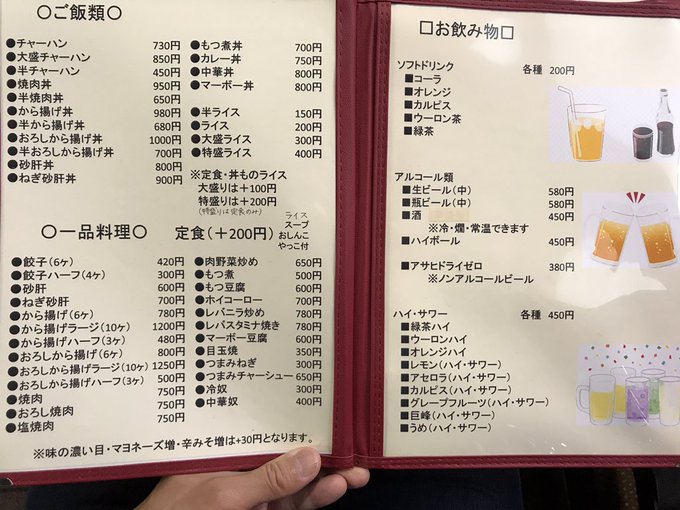 〇ご飯類〇
●チャーハン 730円
●大盛チャーハン 850円
●半チャーハン 450円
●焼肉丼 950円
●半焼肉丼 650円
●から揚げ丼 980円
●半から揚げ丼 680円
●おろしから揚げ丼 1000円
●半おろしから揚げ丼 700円
●砂肝丼 800円
●ねぎ砂肝丼 900円
●もつ煮丼 700円
●カレー丼 750円
●中華丼 800円
●マーボー丼 800円
●半ライス 150円
●ライス 200円
●大盛ライス 300円
●特盛ライス 400円
※定食・丼ものライス
大盛りは+100円
特盛りは+200円
(特盛りは定食のみ)
〇一品料理〇
定食(+200円)
ライス
スープ
おしんこ
やっこ付
●餃子(6ヶ) 420円
●餃子ハーフ(4ヶ) 300円
●砂肝 600円
●ねぎ砂肝 700円
●から揚げ(6ヶ) 780円
●から揚げラージ(10ヶ) 1200円
●から揚げハーフ(3ヶ) 480円
●おろしから揚げ(6ヶ) 800円
●おろしから揚げラージ(10ヶ) 1250円
●おろしから揚げハーフ(3ヶ) 500円
●焼肉 750円
●おろし焼肉 750円
●塩焼肉 750円
●肉野菜炒め 650円
●もつ煮 500円
●もつ豆腐 600円
●ホイコーロー 700円
●レバニラ炒め 780円
●レバスタミナ焼き 780円
●マーボー豆腐 600円
●目玉焼 350円
●つまみねぎ 300円
●つまみチャーシュー 650円
●冷奴 300円
●中華奴 400円
※味の濃い目・マヨネーズ増・辛みそ増は+30円となります。
□お飲み物□
ソフトドリンク 各種 200円
■コーラ
■オレンジ
■カルピス
■ウーロン茶
■緑茶
アルコール類
■生ビール(中) 580円
■瓶ビール(中) 580円
■酒 450円
※冷・燗・常温できます
■ハイボール 450円
■アサヒドライゼロ 380円
※ノンアルコールビール
ハイ・サワー 各種 450円
■緑茶ハイ
■ウーロンハイ
■オレンジハイ
■レモン(ハイ・サワー)
■アセロラ(ハイ・サワー)
■カルピス(ハイ・サワー)
■グレープフルーツ(ハイ・サワー)
■巨峰(ハイ・サワー)
■うめ(ハイ・サワー)